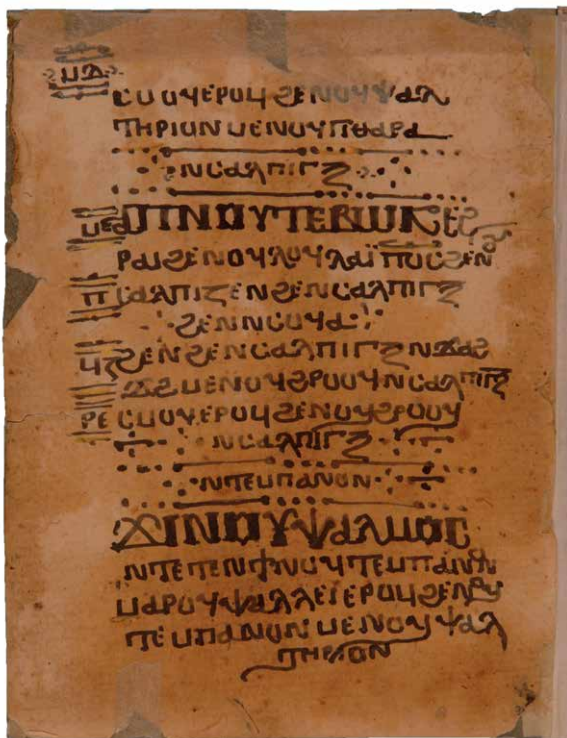 ⲥⲙⲟⲩⲉⲣⲟϥϩⲉⲛⲟⲩⲯⲁⲗ
ⲧⲏⲣⲓⲟⲛⲙⲉⲛⲟⲩⲅⲓⲑⲁⲣⲁ
ⲛⲥⲁⲗⲡⲓⲅⲝ
ⲁⲡⲛⲟⲩⲧⲉⲃⲱⲕⲉϩ
ⲣⲁⲓϩⲉⲛⲟⲩⲗⲟⲩⲗⲁⲓ̈ⲡⲟⲥϩⲉⲛ
ⲡ ⲥⲁⲗⲡⲓⲍⲉⲛϩⲉⲛⲥⲁⲗⲡⲓⲅⲝ
ϩⲉⲛⲛⲥⲟⲩⲁ
ϥⲍ ϩⲉⲛϩⲉⲛⲥⲁⲗⲡⲓⲅⲝⲛϫⲁϩ
ϫϩⲙⲉⲛⲟⲩϩⲣⲟⲟⲩⲛⲥⲁⲗⲡⲓⲅⲝ
ⲣⲉ ⲥⲙⲟⲩⲉⲣⲟϥϩⲉⲛⲟⲩϩⲣⲟⲟⲩ
ⲛⲥⲁⲗⲡⲓⲅⲝ
ⲛⲧⲉⲙⲡⲁⲛⲟⲛ
ϫⲓⲛⲟⲩⲯⲁⲗⲙⲟⲥ
ⲛⲧⲉⲧⲉⲛϯⲛⲟⲩⲧⲉⲙⲡⲁⲛⲟⲛ
ⲙⲁⲣⲟⲩⲯⲁⲗⲗⲉⲓⲉⲣⲟϥϩⲉⲛⲟⲩ
ⲧⲉⲙⲡⲁⲛⲟⲛⲙⲉⲛⲟⲩⲯⲁⲗ
ⲧⲏⲣⲓⲟⲛ